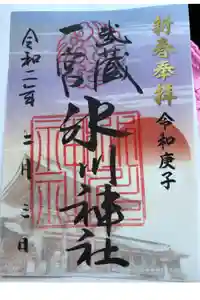 新春奉拝
令和庚子
武蔵
一宮
氷川神社
令和二年
二月三日